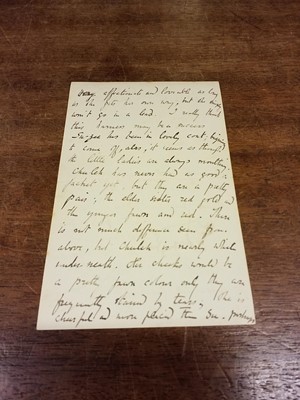 very affectionate and loveable as long
as she gets his own way, but she simply
won't go in a lead. I really think
this
has been in lovely coat,
it seems as though
the little ladies are always moulting.
Chulch has never had as good a
jacket yet, but they are a pretty
pair; the elder water red gold and
the younger fawn and red. There
is not much difference seen from
above, but Chulch is nearly white
underneath. Her cheeks would be
a pretty fawn colour only they are
frequently stained by tears. She is
cheerful and more pleasant than